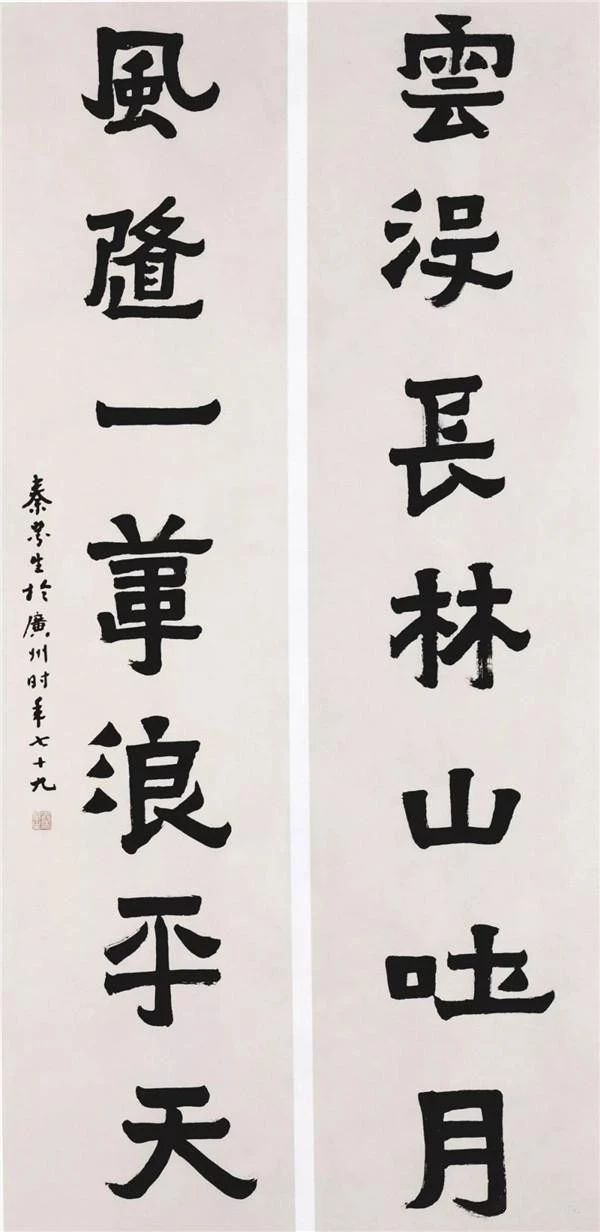 雲没長林山吐月
風隨一葦浪平天
秦咢生於廣州时年七十九